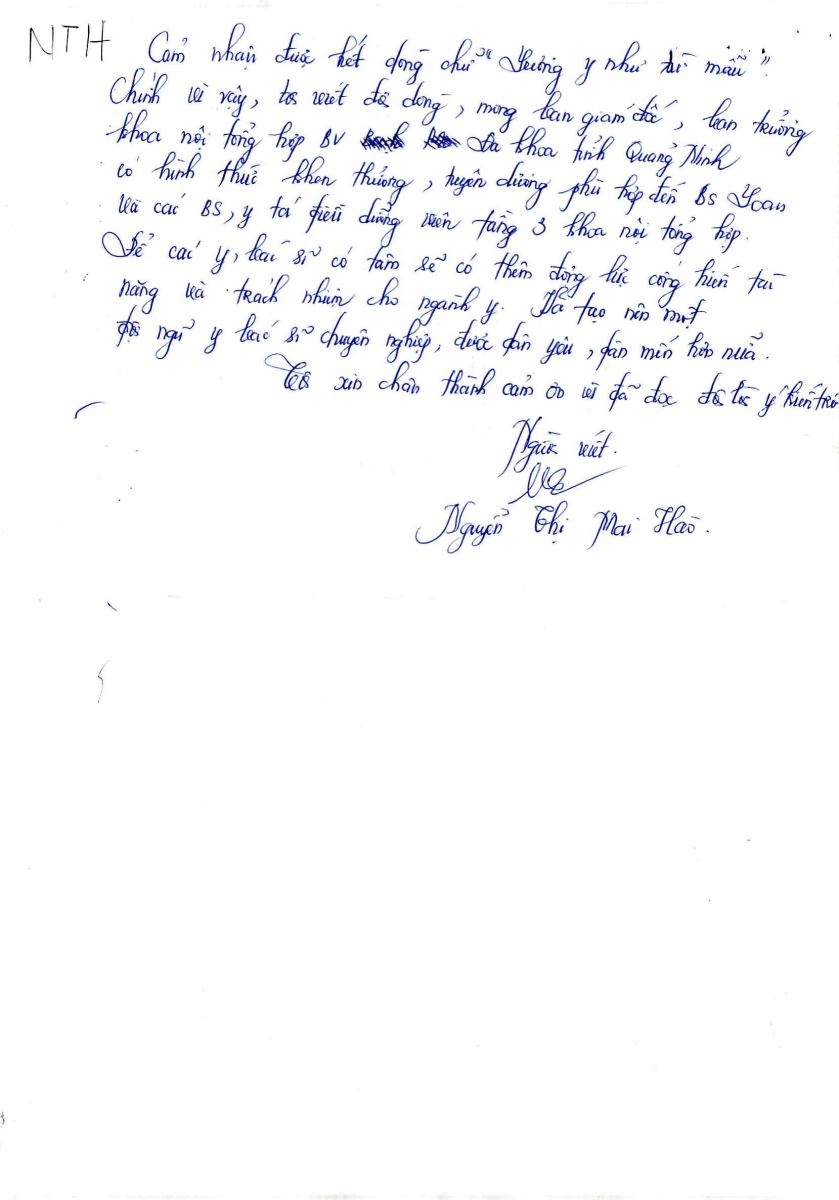 NTH
Cảm nhận được hết dòng chữ "Lương y như từ mẫu".
Chính vì vậy, tôi viết đôi dòng, mong ban giám đốc, ban trưởng
khoa nội tổng hợp BV Đa khoa tỉnh Quảng Ninh
có hình thức khen thưởng, tuyên dương phù hợp đến BS Loan
và các BS, y tá điều dưỡng viên tầng 3 khoa nội tổng hợp.
Để các y, bác sĩ có tâm sẽ có thêm động lực cống hiến tài
năng và trách nhiệm cho ngành y. Và tạo nên một
đội ngũ y bác sĩ chuyên nghiệp, được dân yêu, dân mến hơn nữa.
Tôi xin chân thành cảm ơn vì đã đọc đôi lời ý kiến trên
Người viết.
Nguyễn Thị Mai Hảo.